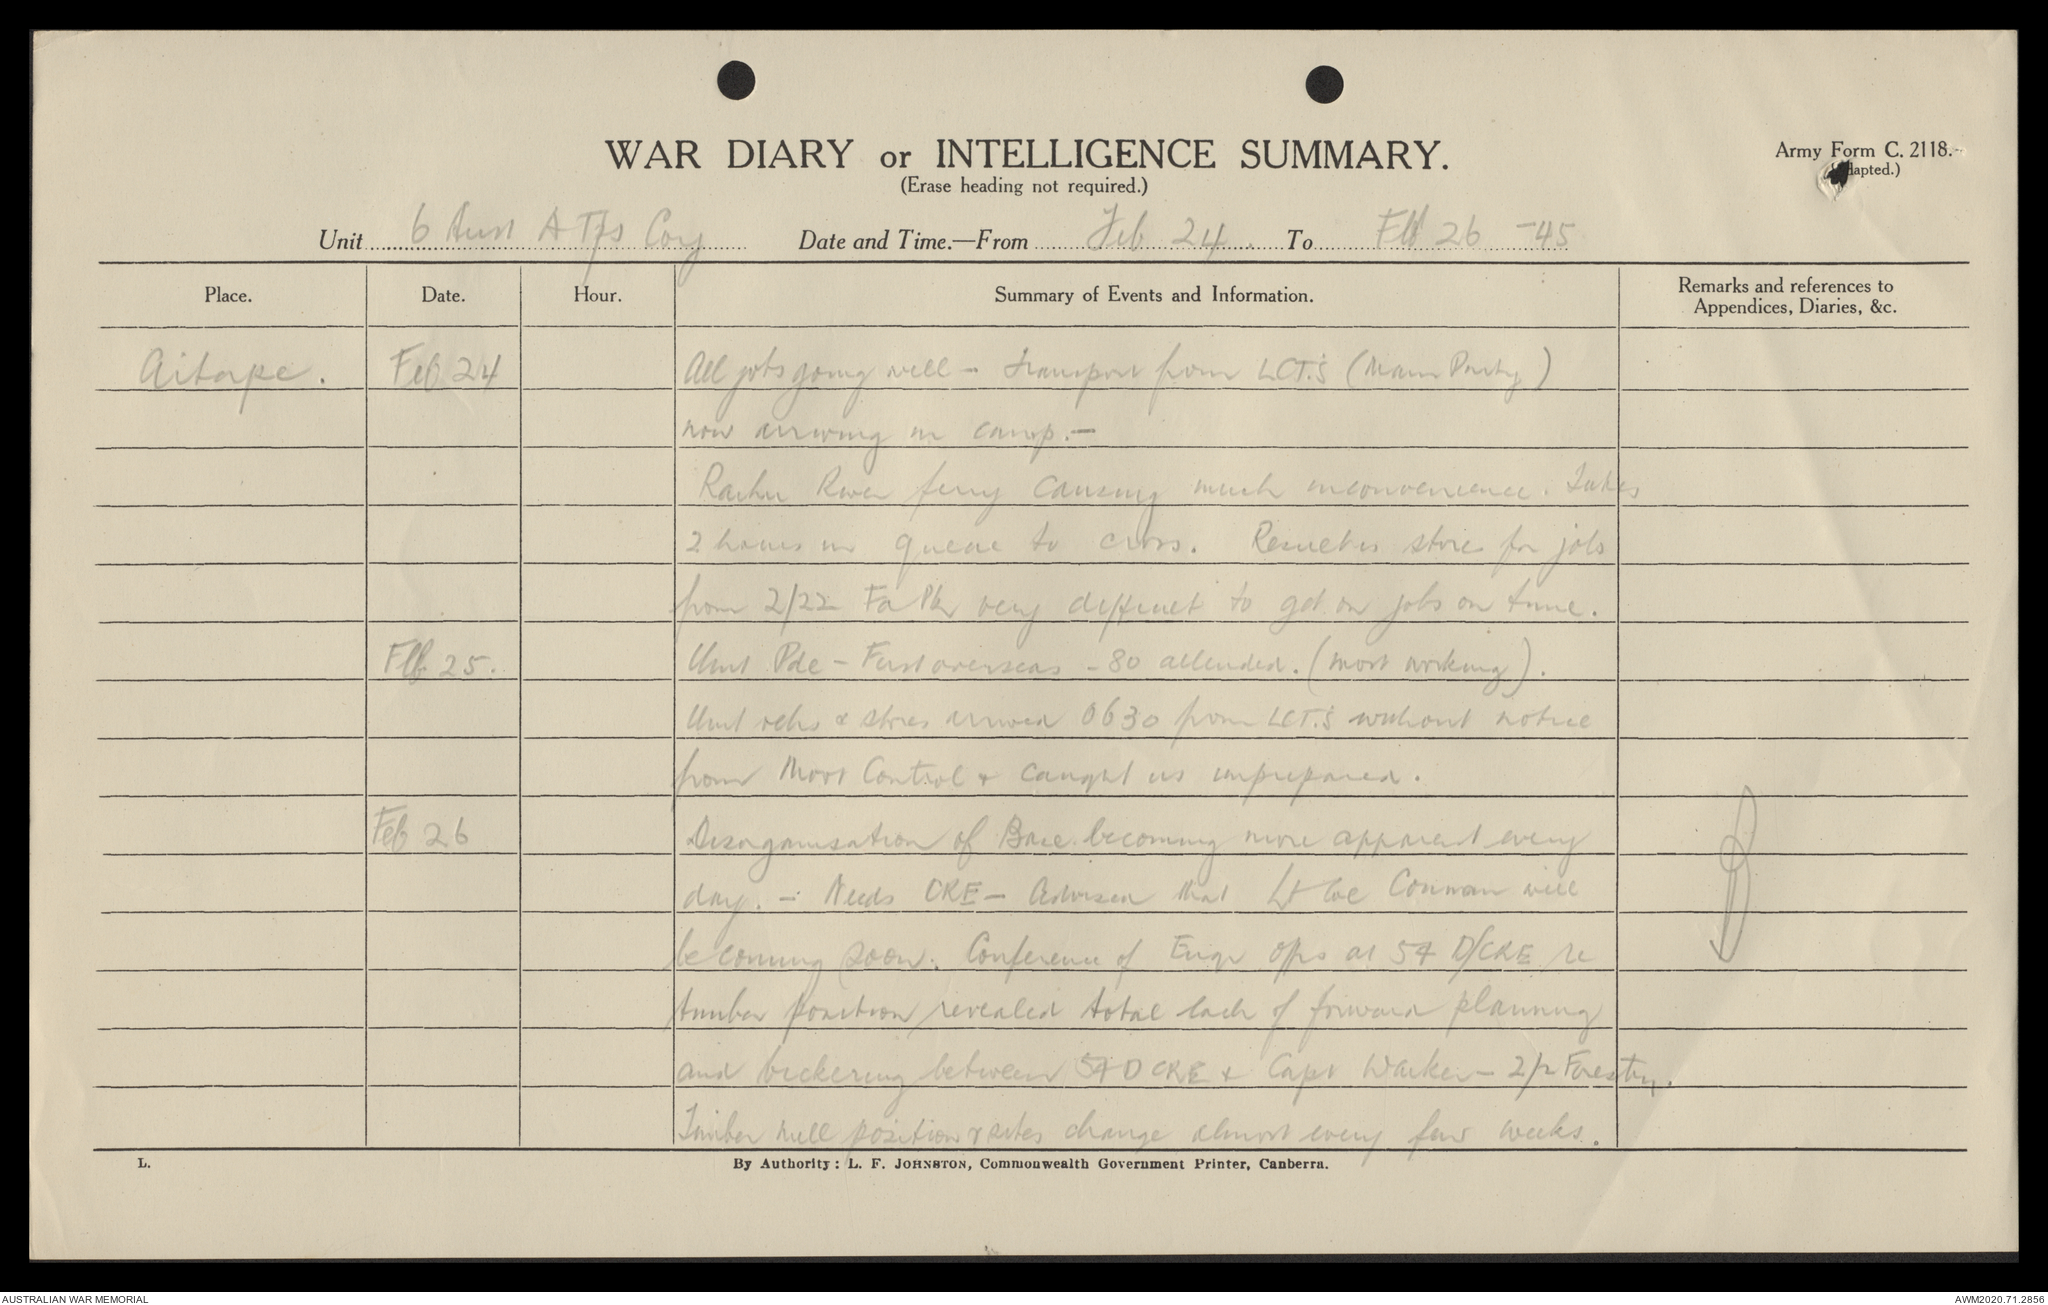 WAR DIARY or INTELLIGENCE SUMMARY.
(Erase heading not required.)
Army Form C. 2118.
(Adapted.)
Unit 6 Aust A Tps Coy Date and Time.—From Feb 24. To Feb 26 -45
Place. Date. Hour. Summary of Events and Information. Remarks and references to
Appendices, Diaries, &c.
Aitape. Feb 24 All jobs going well - transport from LCT.s (Main Party)
now arriving in camp.-
River ferry causing much inconvenience. Takes
2 hours in queue to cross. Result is stores for jobs
from 2/22 Fd Pk very difficult to get on jobs on time.
Feb 25. Unit Pde - First overseas - 80 attended. (most working).
Unit vehs & stores arrived 0630 from LCT.s without notice
from Movt Control & caught us unprepared.
Feb 26 Disorganisation of Base becoming more apparent every
day. - Needs CRE - Advised that Lt Col will
be coming soon. Conference of Engr offrs at 54 D/CRE re
timber position revealed total lack of forward planning
and bickering between 54 D CRE & Capt - 2/2 Forestry.
Timber mill position & sites change almost every few weeks.
L. By Authority: L. F. JOHNSTON, Commonwealth Government Printer, Canberra.
AUSTRALIAN WAR MEMORIAL AWM2020.71.2856